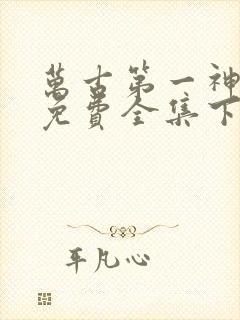 萬古第一神
免費全集下
平凡心